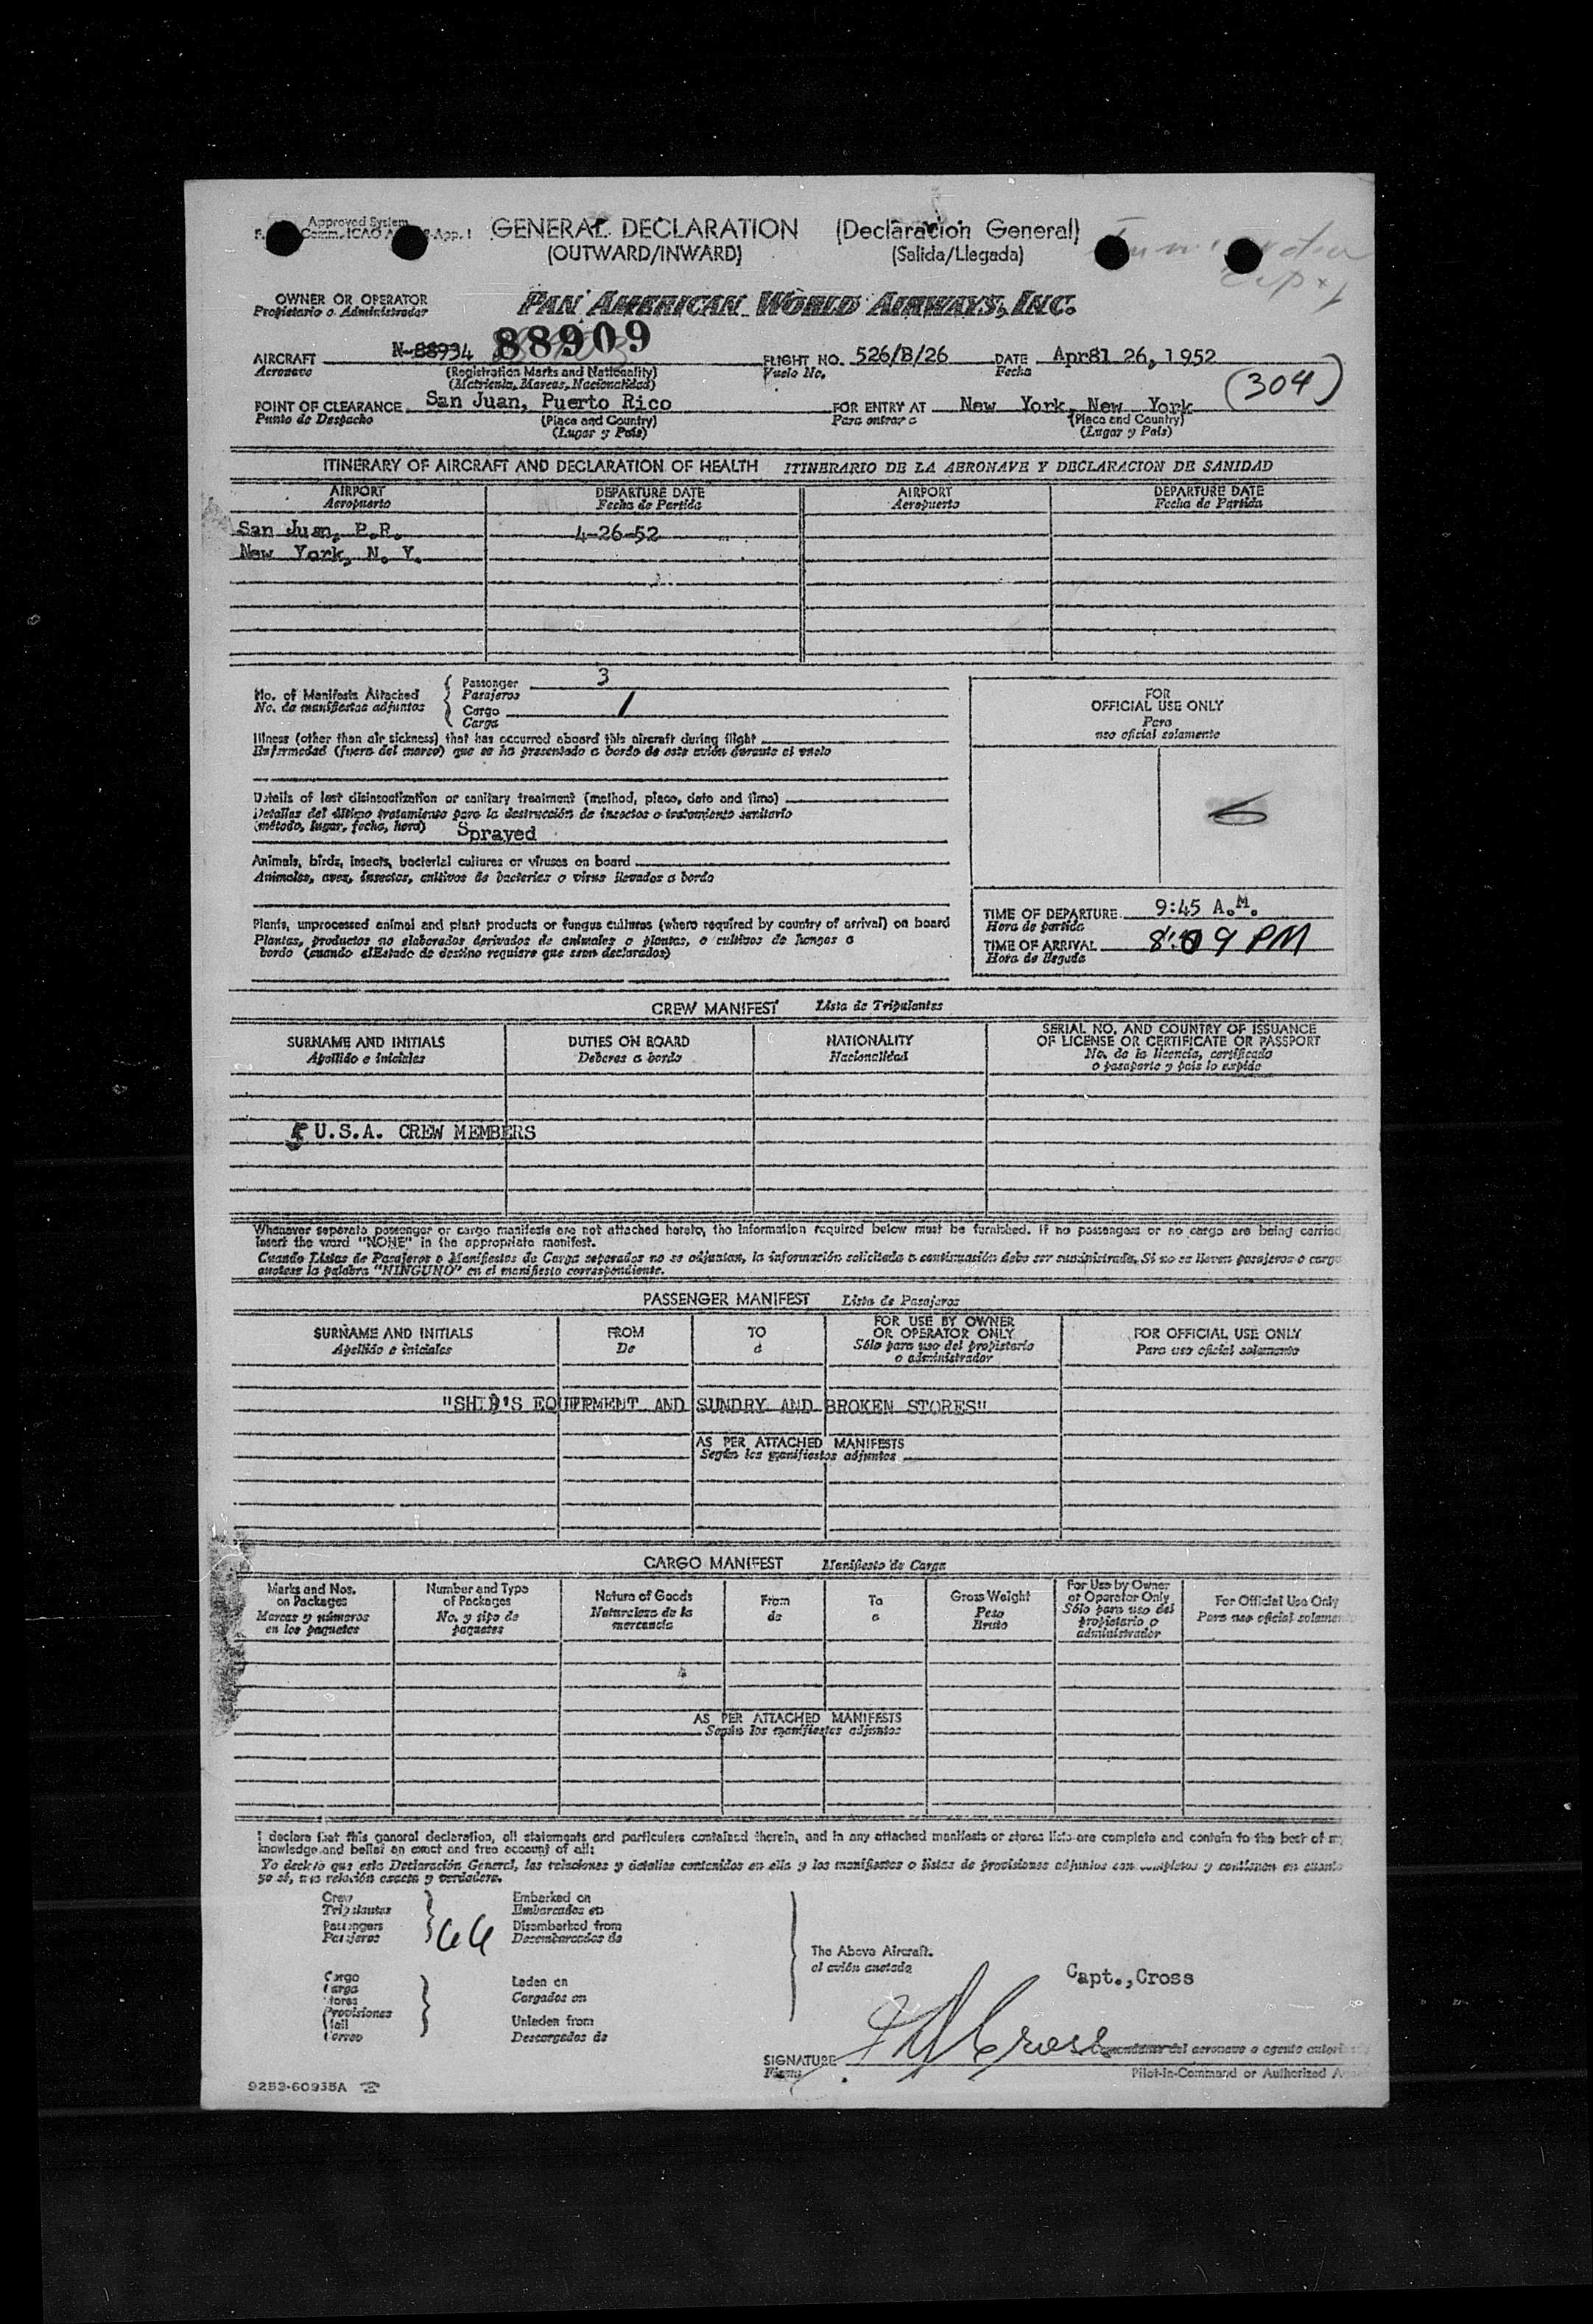 Approved System
GENERAL DECLARATION (Declaración General)
(OUTWARD/INWARD) (Salida/Llegada)
OWNER OR OPERATOR
Propietario o Administrador
PAN AMERICAN WORLD AIRWAYS, INC.
AIRCRAFT N-88934 88909 FLIGHT NO. 526/B/26 DATE Apr81 26, 1952
Aeronave (Registration Marks and Nationality) Vuelo No. Fecha
(Matricula, Marcas, Nacionalidad)
(304)
POINT OF CLEARANCE San Juan, Puerto Rico FOR ENTRY AT New York, New York
Punto de Despacho (Place and Country) Para entrar a (Place and Country)
(Lugar y País) (Lugar y País)
ITINERARY OF AIRCRAFT AND DECLARATION OF HEALTH ITINERARIO DE LA AERONAVE Y DECLARACION DE SANIDAD
AIRPORT DEPARTURE DATE AIRPORT DEPARTURE DATE
Aeropuerto Fecha de Partida Aeropuerto Fecha de Partida
San Juan, P.R. 4-26-52
New York, N. Y.
No. of Manifests Attached
No. de manifiestos adjuntos
Passenger 3
Pasajeros
Cargo 1
Carga
Illness (other than air sickness) that has occurred aboard this aircraft during flight
Enfermedad (fuera del mareo) que se ha presentado a bordo de este avión durante el vuelo
Details of last disinsectization or sanitary treatment (method, place, date and time)
Detalles del último tratamiento para la destrucción de insectos o tratamiento sanitario
(método, lugar, fecha, hora) Sprayed
Animals, birds, insects, bacterial cultures or viruses on board
Animales, aves, insectos, cultivos de bacterias o virus llevados a bordo
Plants, unprocessed animal and plant products or fungus cultures (where required by country of arrival) on board
Plantas, productos no elaborados derivados de animales o plantas, o cultivos de hongos a
bordo (cuando elEstado de destino requiere que sean declarados)
FOR
OFFICIAL USE ONLY
Para
uso oficial solamente
TIME OF DEPARTURE 9:45 A.M.
Hora de partida
TIME OF ARRIVAL 8:09 PM
Hora de llegada
CREW MANIFEST Lista de Tripulantes
SURNAME AND INITIALS DUTIES ON BOARD NATIONALITY SERIAL NO. AND COUNTRY OF ISSUANCE
OF LICENSE OR CERTIFICATE OR PASSPORT
Apellido e iniciales Deberes a bordo Nacionalidad No. de la licencia, certificado
o pasaporte y país lo expide
5 U.S.A. CREW MEMBERS
Whenever separate passenger or cargo manifests are not attached hereto, the information required below must be furnished. If no passengers or no cargo are being carried
insert the word "NONE" in the appropriate manifest.
Cuando Listas de Pasajeros o Manifiestos de Carga separados no se adjuntan, la información solicitada a continuación debe ser suministrada. Si no se lleven pasajeros o carga
anotese la palabra "NINGUNO" en el manifiesto correspondiente.
PASSENGER MANIFEST Lista de Pasajeros
SURNAME AND INITIALS FROM TO FOR USE BY OWNER
OR OPERATOR ONLY FOR OFFICIAL USE ONLY
Apellido e iniciales De a Sólo para uso del propietario
o administrador Para uso oficial solamente
"SHIP'S EQUIPMENT AND SUNDRY AND BROKEN STORES"
AS PER ATTACHED MANIFESTS
Según los manifiestos adjuntos
CARGO MANIFEST Manifiesto de Carga
Marks and Nos.
on Packages
Marcas y números
en los paquetes
Number and Type
of Packages
No. y tipo de
paquetes
Nature of Goods
Naturaleza de la
mercancía
From
de
To
a
Gross Weight
Peso
Bruto
For Use by Owner
or Operator Only
Sólo para uso del
propietario o
administrador
For Official Use Only
Para uso oficial solamen
AS PER ATTACHED MANIFESTS
Según los manifiestos adjuntos
I declare that this general declaration, all statements and particulars contained therein, and in any attached manifests or stores lists are complete and contain to the best of my
knowledge and belief an exact and true account of all:
Yo declaro que esta Declaración General, las relaciones y detalles contenidos en ella y los manifiestos o listas de provisiones adjuntos son completos y contienen en cuanto
yo sé, una relación exacta y verdadera.
Crew
Tripulantes
Passengers
Pasajeros
66
Embarked on
Embarcados en
Disembarked from
Desembarcados de
Cargo
Carga
Stores
Provisiones
Mail
Correo
Laden on
Cargados en
Unladen from
Descargados de
The Above Aircraft.
el avión anotado
Capt., Cross
SIGNATURE
Firma
Comandante del aeronave o agente autori
Pilot-in-Command or Authorized A
9253-60935A